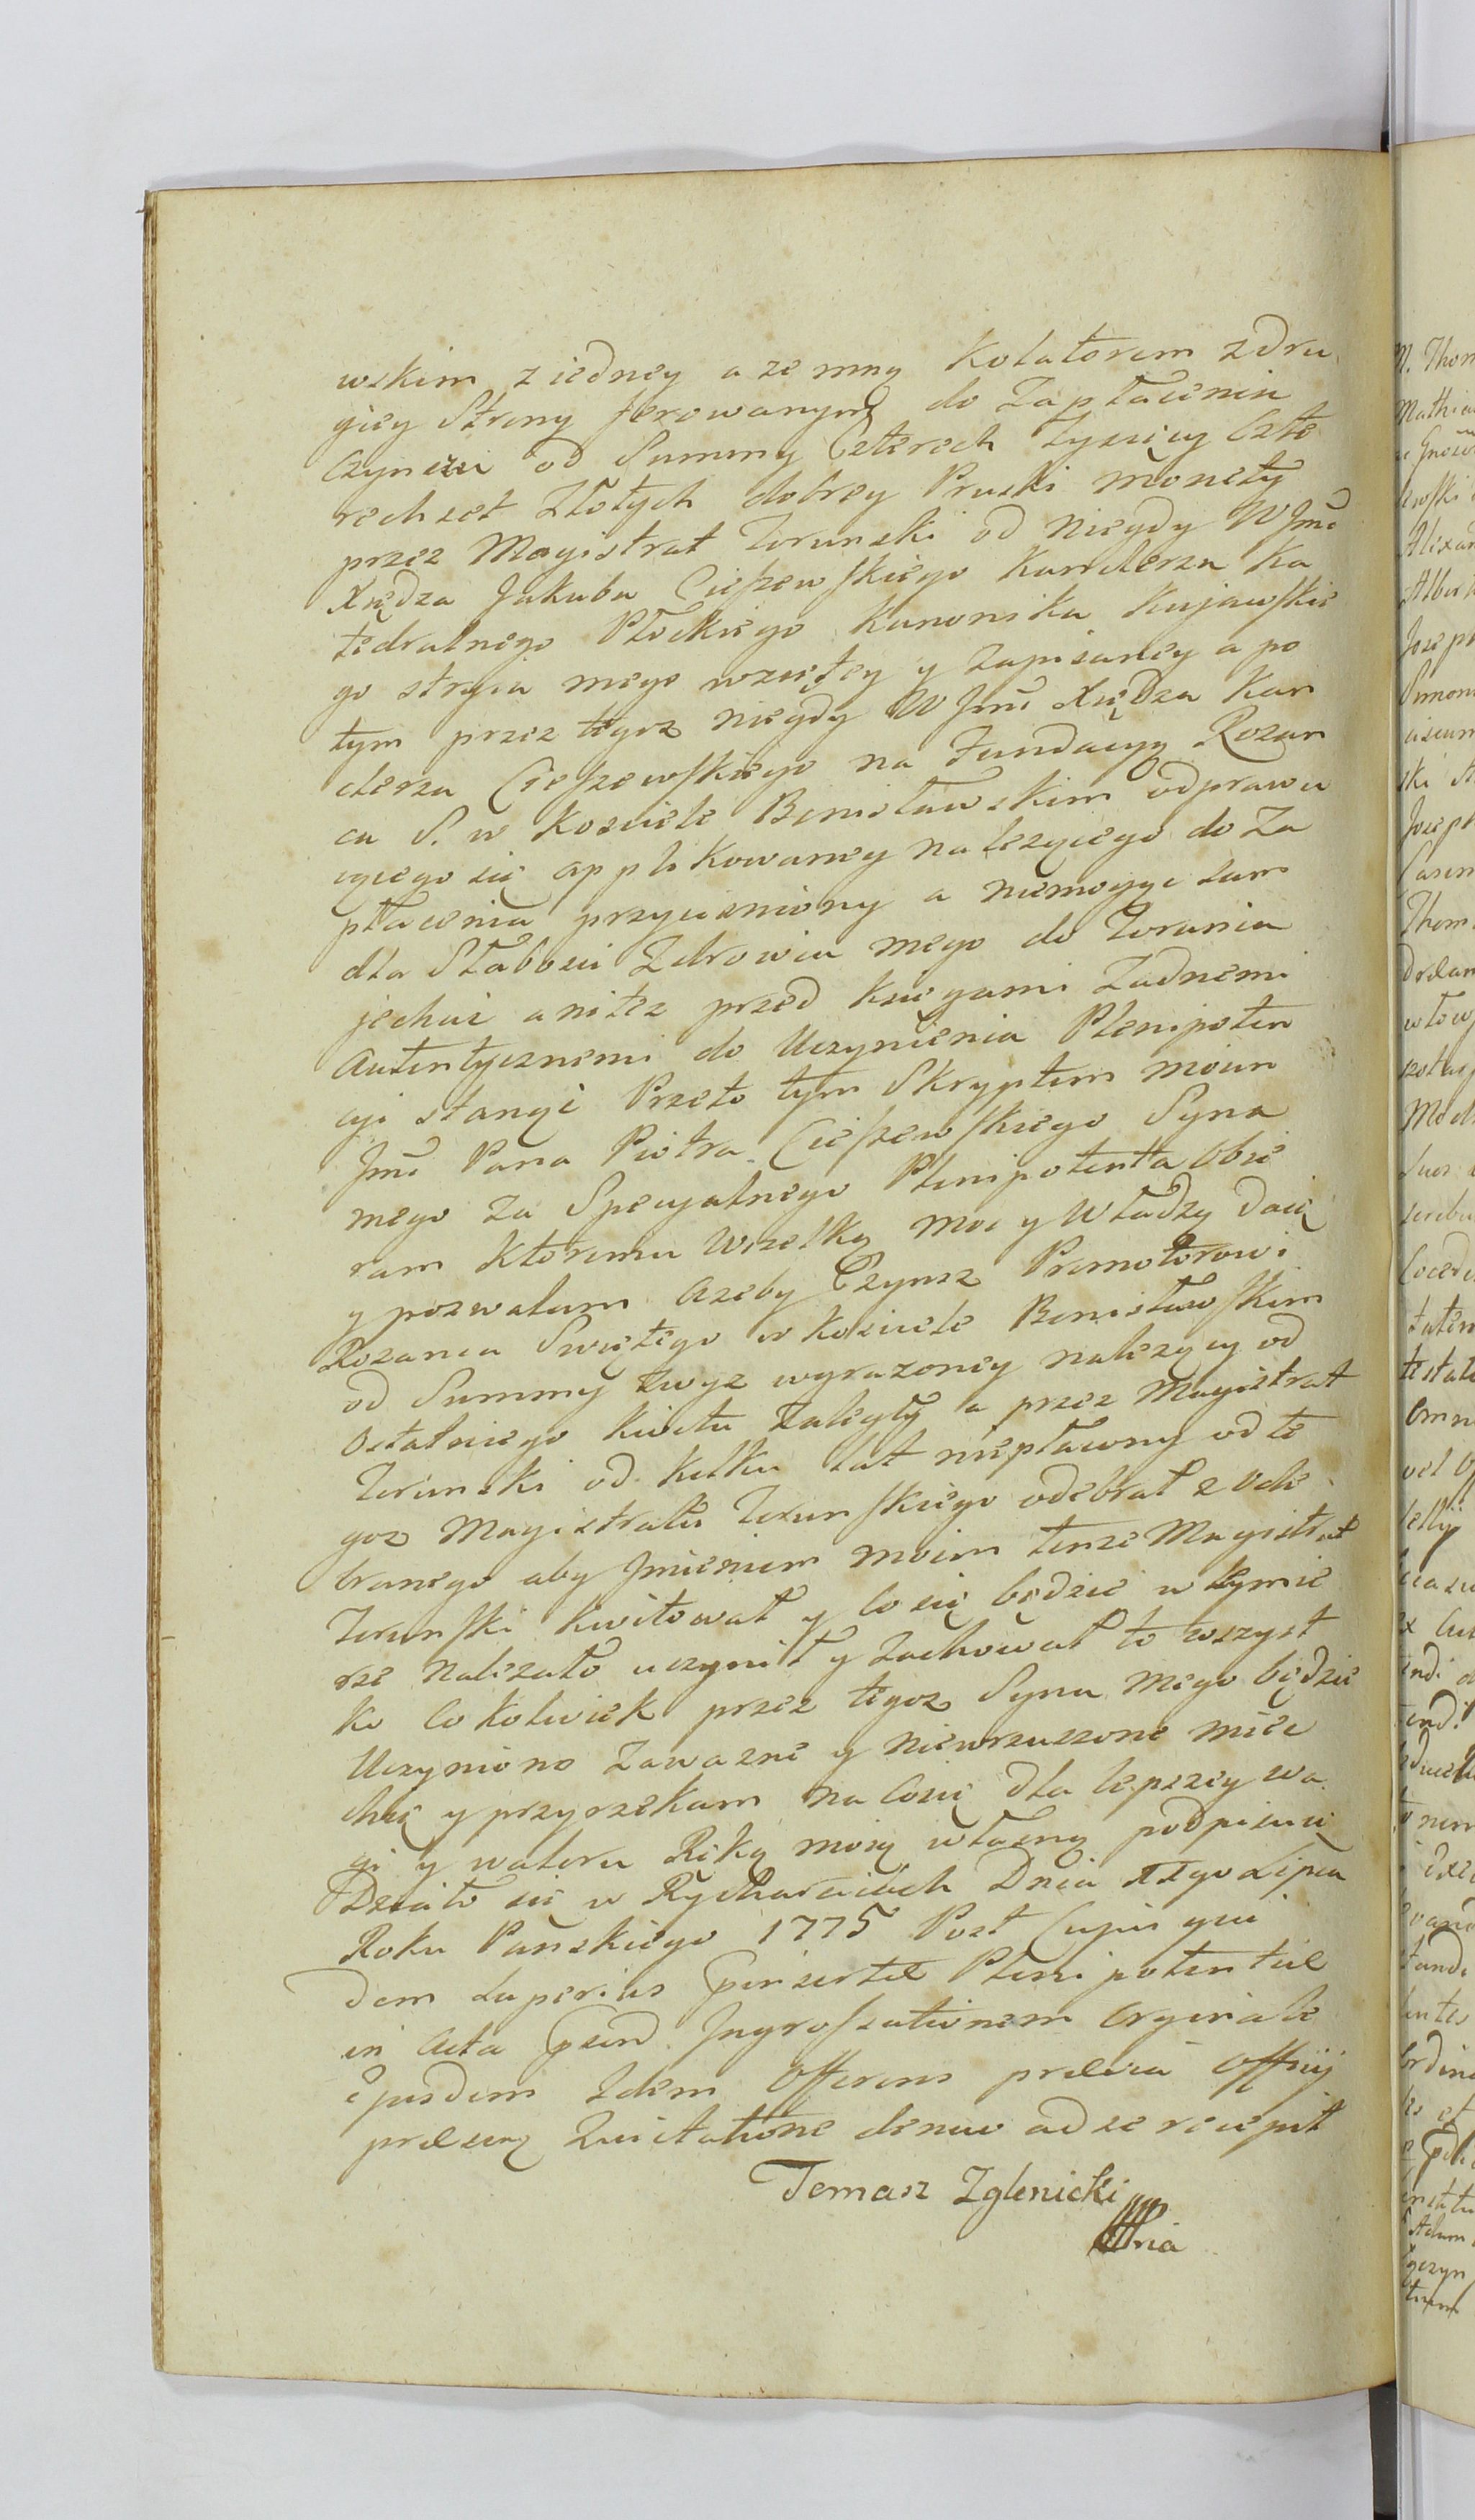 wskim z iedney a ze mną Kolatorem zdru
giey Strony ferowanym do Zapłacenia
Czynszu od Summy Czterech Tysięcy Czte
rechset Złotych dobrey Pruski monety
przez Magistrat Torunski od Niegdy WJmć
Xiędza Jakuba Cieszewskiego Kanclerza Ka
tedralnego Płockiego Kanonika Kujawskie
go stryia mego wzietey y Zapisaney a po
tym przez tegoz niegdy WJmć Xiędza Kan
clerza Cieszewskiego na Fundacyą Rozan
ca S. w Kosciele Bonisławskim odprawu
iącego się applikowaney nalezącego do Za
płacenia przycisniony a niemogąc sam
dla Słabosci Zdrowia mego do Torunia
jechać anitez przed Księgami Zadnemi
Autentycznemi do Uczynienia Plenipoten
cyi stanąć Przeto tym Skryptem moim
Jmć Pana Piotra Cieszewskiego Syna
mego za Specyalnego Plenipotenta Obie
ram Ktoremu Wszelką moc y Władzę daię
y pozwalam Azeby Czynsz Promotorowi
Rozanca Swiętego w Kosciele Bonisławskim
od Summy zwyz wyrazoney nalezący od
Ostatniego Kwitu Zaległy a przez Magistrat
Torunski od Kilku lat niepłacony od te
goz Magistratu Torunskiego odebrał z Ode
branego aby Jmieniem moim tenze Magistrat
Torunski Kwitował y Co się będzie w tymie
rze nalezało uczynił y Zachował to wszyst
ko Cokolwiek przez tegoz Syna mego będzie
Uczyniono Zawazne y niewzruszone mieć
chcę y przyrzekam na Cosię dla lepszey wa
gi y waloru Ręką moią własną podpisuię
Działo się w Rycharcicach Dnia XXgo Lipca
Roku Panskiego 1775 Post Cujus qui
dem superius Insertae Plenipotentiae
in Acta Ingrossationem Originale
Ejusdem Idem Offerens praevia Officij
praesentis Quietatione denuo ad se recepit
Tomasz Zglenicki